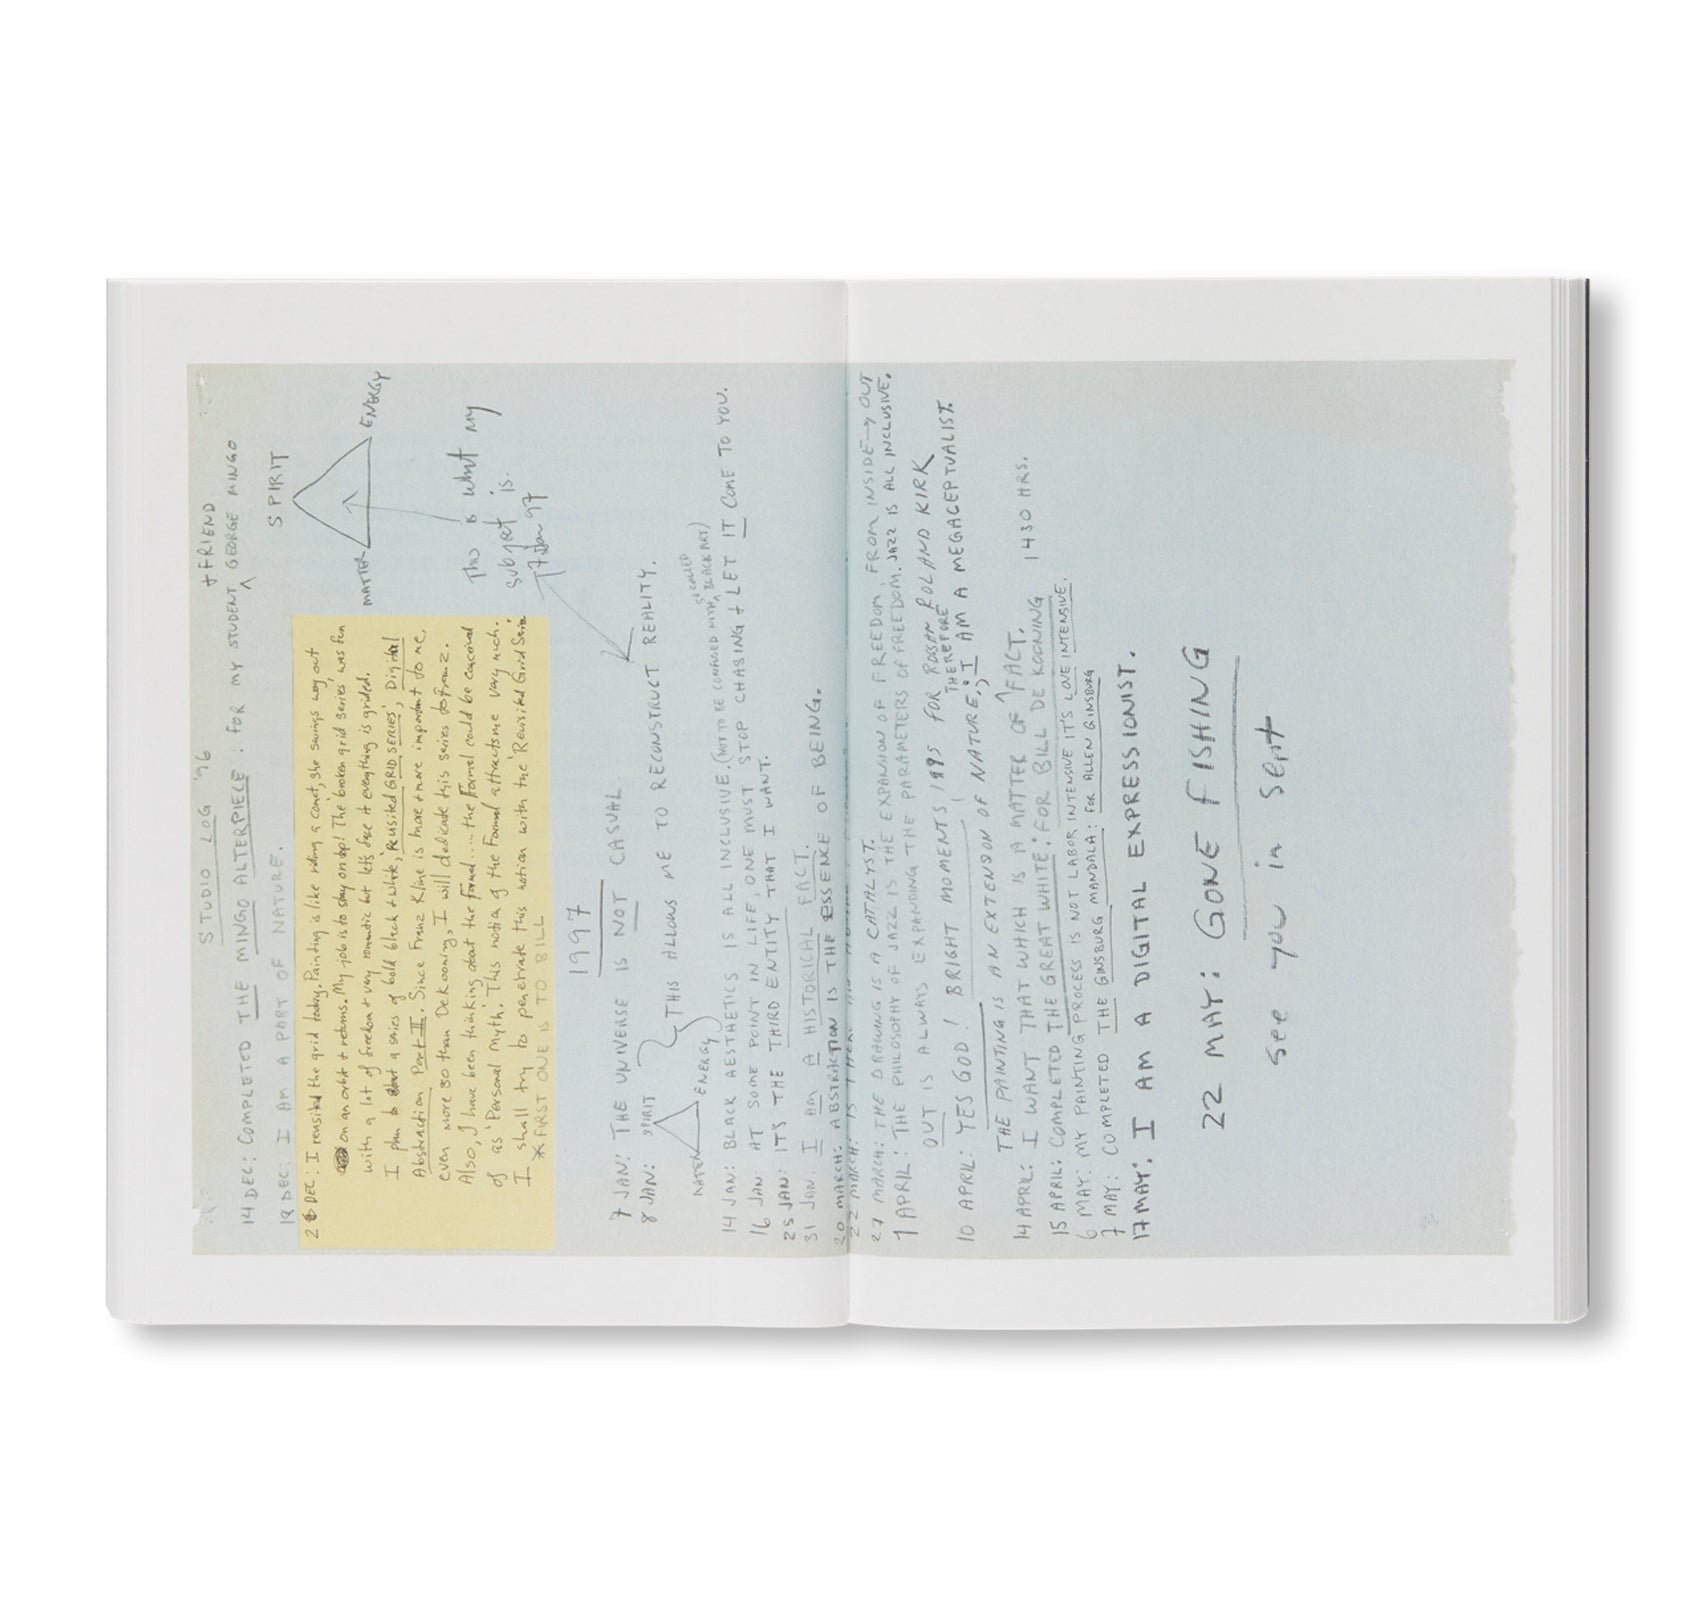 STUDIO LOG '96
+ FRIEND
14 DEC: COMPLETED THE MINGO ALTERPIECE: FOR MY STUDENT ^ GEORGE MINGO
18 DEC: I AM A PART OF NATURE.
SPIRIT
MATTER
ENERGY
This is what my
subject is.
7 Jan 97
26 DEC: I revisited the grid today. Painting is like riding a comet, she swings way out
on an orbit & returns. My job is to stay on top! The 'broken grid series' was fun
with a lot of freedom & very romantic but let's face it everything is grided.
I plan to start a series of bold black & white, 'Revisited GRID SERIES', Digital
Abstraction Part II. Since Franz Kline is more & more important to me,
even more so than DeKooning, I will dedicate this series to Franz.
Also, I have been thinking about the formal.... the formal could be conceived
of as 'Personal Myth'. This notion of the Formal attracts me very much.
I shall try to penetrate this notion with the 'Revisited Grid Series'.
* FIRST ONE IS TO BILL
1997
7 JAN: THE UNIVERSE IS NOT CASUAL.
8 JAN: SPIRIT
MATTER
ENERGY
THIS ALLOWS ME TO RECONSTRUCT REALITY.
SO CALLED
14 JAN: BLACK AESTHETICS IS ALL INCLUSIVE. (NOT TO BE CONFUSED WITH ^ BLACK ART)
16 JAN: AT SOME POINT IN LIFE, ONE MUST STOP CHASING & LET IT COME TO YOU.
25 JAN: IT'S THE THIRD ENTITY THAT I WANT.
31 JAN. I AM A HISTORICAL FACT.
20 MARCH: ABSTRACTION IS THE ESSENCE OF BEING.
22 MARCH:
27 MARCH: THE DRAWING IS A CATALYST.
1 APRIL: THE PHILOSOPHY OF JAZZ IS THE EXPANSION OF FREEDOM, FROM INSIDE → OUT
OUT IS ALWAYS EXPANDING THE PARAMETERS OF FREEDOM. JAZZ IS ALL INCLUSIVE.
10 APRIL: YES GOD! BRIGHT MOMENTS 1995 FOR RAHSAAN ROLAND KIRK
THEREFORE
THE PAINTING IS AN EXTENSION OF NATURE, ∴ I AM A MEGACEPTUALIST.
14 APRIL: I WANT THAT WHICH IS A MATTER OF ^ FACT.
15 APRIL: COMPLETED THE GREAT WHITE: FOR BILL DE KOONING 1430 HRS.
6 MAY: MY PAINTING PROCESS IS NOT LABOR INTENSIVE IT'S LOVE INTENSIVE.
7 MAY: COMPLETED THE GINSBURG MANDALA: FOR ALLEN GINSBURG
17 MAY: I AM A DIGITAL EXPRESSIONIST.
22 MAY: GONE FISHING
see you in Sept